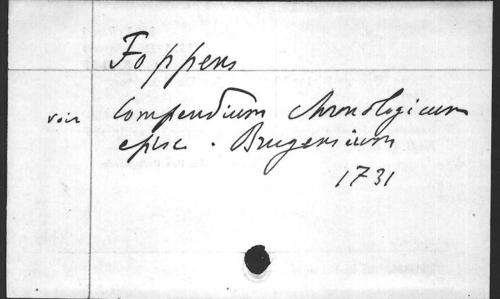 Foppens
voir Compendium chronologicum
episc. Brugensium
1731